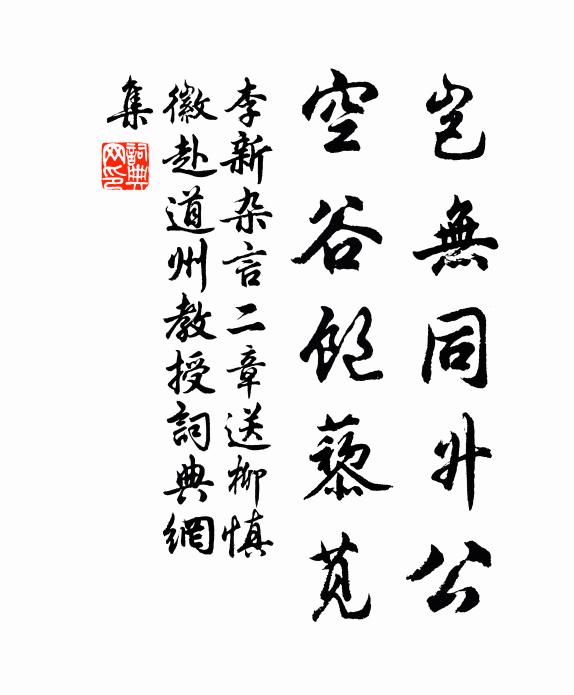 岂無同升公
空谷飽藜莧
李新杂言二章送柳慎
徽赴道州教授詞典網
集
詞典
网印